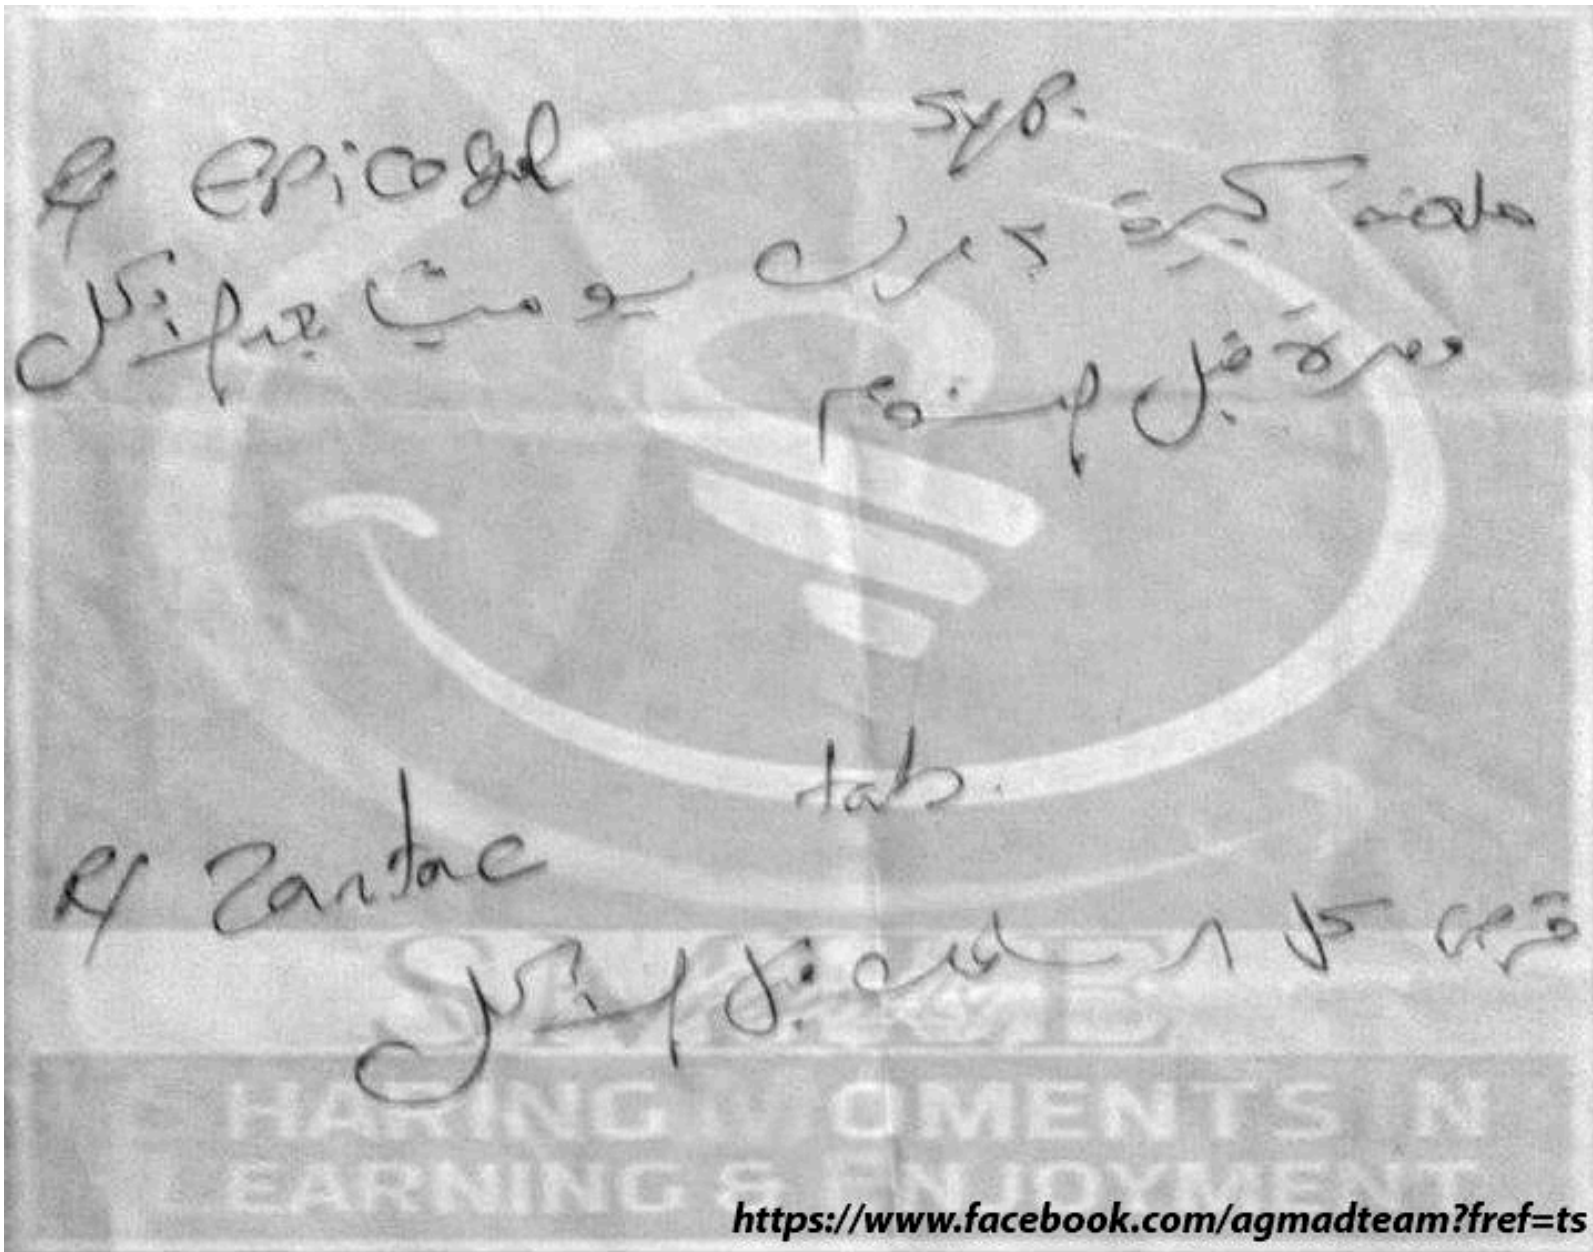 R/ Epicogel syp.
ملعقة كبيرة ٣ مرات يوميا بعد الأكل
ومرة قبل النوم
R/ Zantac tab.
قرص كل ١٢ ساعة قبل الأكل
HARING MOMENTS IN
EARNING & ENJOYMENT
https://www.facebook.com/agmadteam?fref=ts